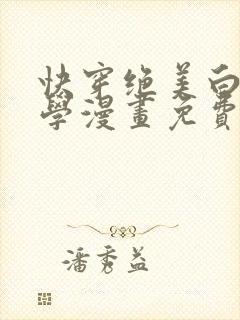 快穿绝美白
學漫畫免費
潘秀益